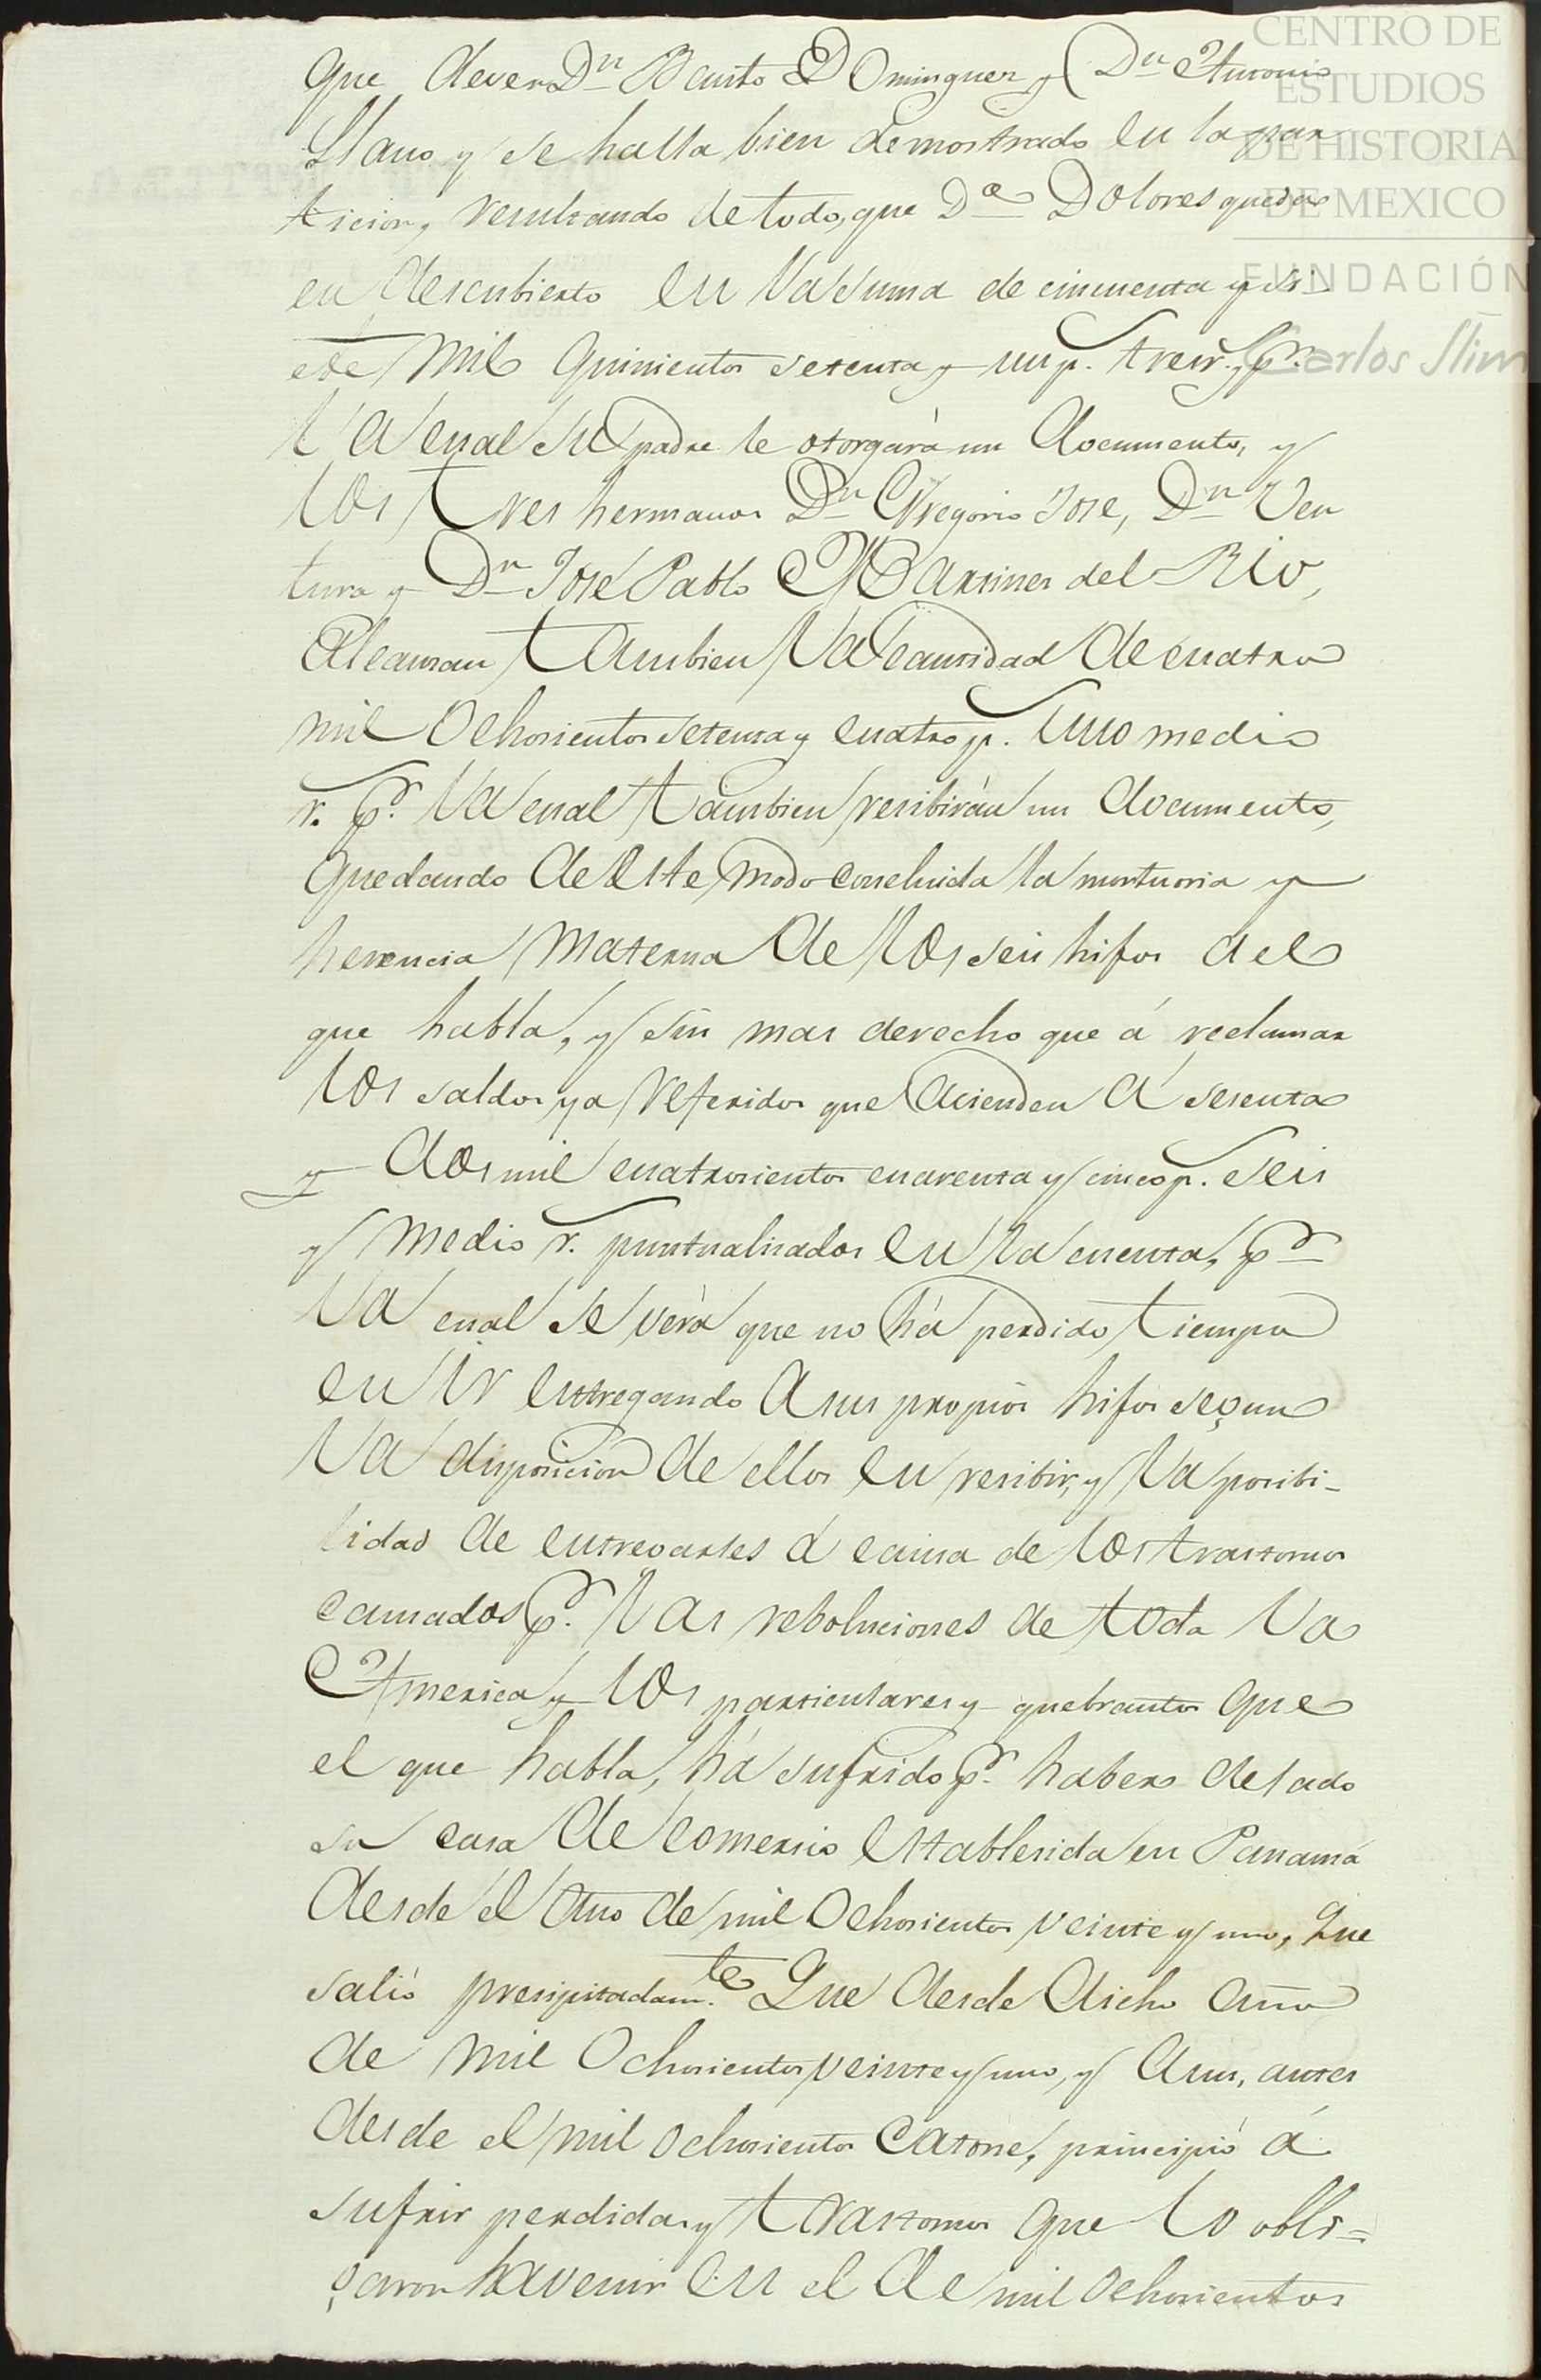 CENTRO DE
ESTUDIOS
DE HISTORIA
DE MEXICO
FUNDACIÓN
Carlos Slim
que deven Dn Benito Dominguez y Dn Antonio
Llano y se halla bien demostrado en la par
ticion, resultando de todo, que Da Dolores queda
en descubierto en la suma de cincuenta y si-
ete mil quinientos setenta y un p.s tres r.s, pr.
la cual su padre le otorgará un documento, y
los tres hermanos Dn Gregorio Jose, Dn Ven
tura y Dn José Pablo Martines del Rio,
Alcansan tambien la cantidad de cuatro
mil Ochosientos setenta y cuatro p.s uno medio
r.s pr. la cual tambien resibirán un documento,
quedando de este modo concluida la mortuoria y
herencia materna de los seis hijos del
que habla, y sin mas derecho que á reclamar
los saldos ya referidos que acienden á sesenta
y dos mil cuatrosientos cuarenta y cinco p.s seis
y medio r.s puntualisados en la cuenta, pr
la cual se verá que no há perdido tiempo
en ir entregando a sus propios hijos segun
la disposicion de ellos en resibir, y la posibi-
lidad de entregarles á causa de los trastornos
causados pr. las reboluciones de toda la
America y los particulares y quebrantos que
el que habla, há sufrido pr. haber dejado
su casa de comersio establesida en Panamá
desde el año de mil Ochosientos veinte y uno, que
salió presipitadam.te Que desde dicho año
de mil Ochosientos veinte y uno, y aun, antes
desde el mil ochosientos catorse, principió á
sufrir perdidas y trastornos que lo obli=
garon ha venir en el de mil ochosientos